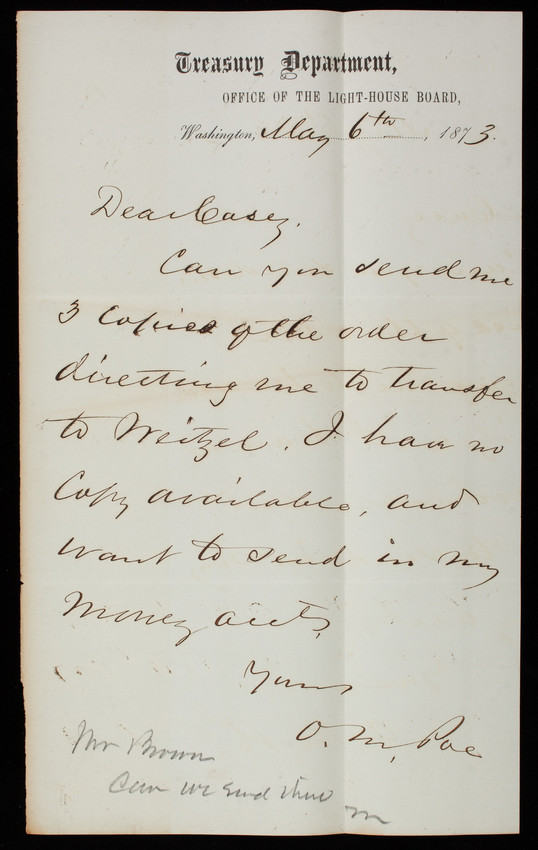 Treasury Department,
OFFICE OF THE LIGHT-HOUSE BOARD,
Washington, May 6th, 1873.
Dear Casey.
Can you send me
3 copies of the order
directing me to transfer
to Weitzel. I have no
copy available, and
want to send in my
money accts,
Yours
O. M. Poe
Mr Brown
Can we send three